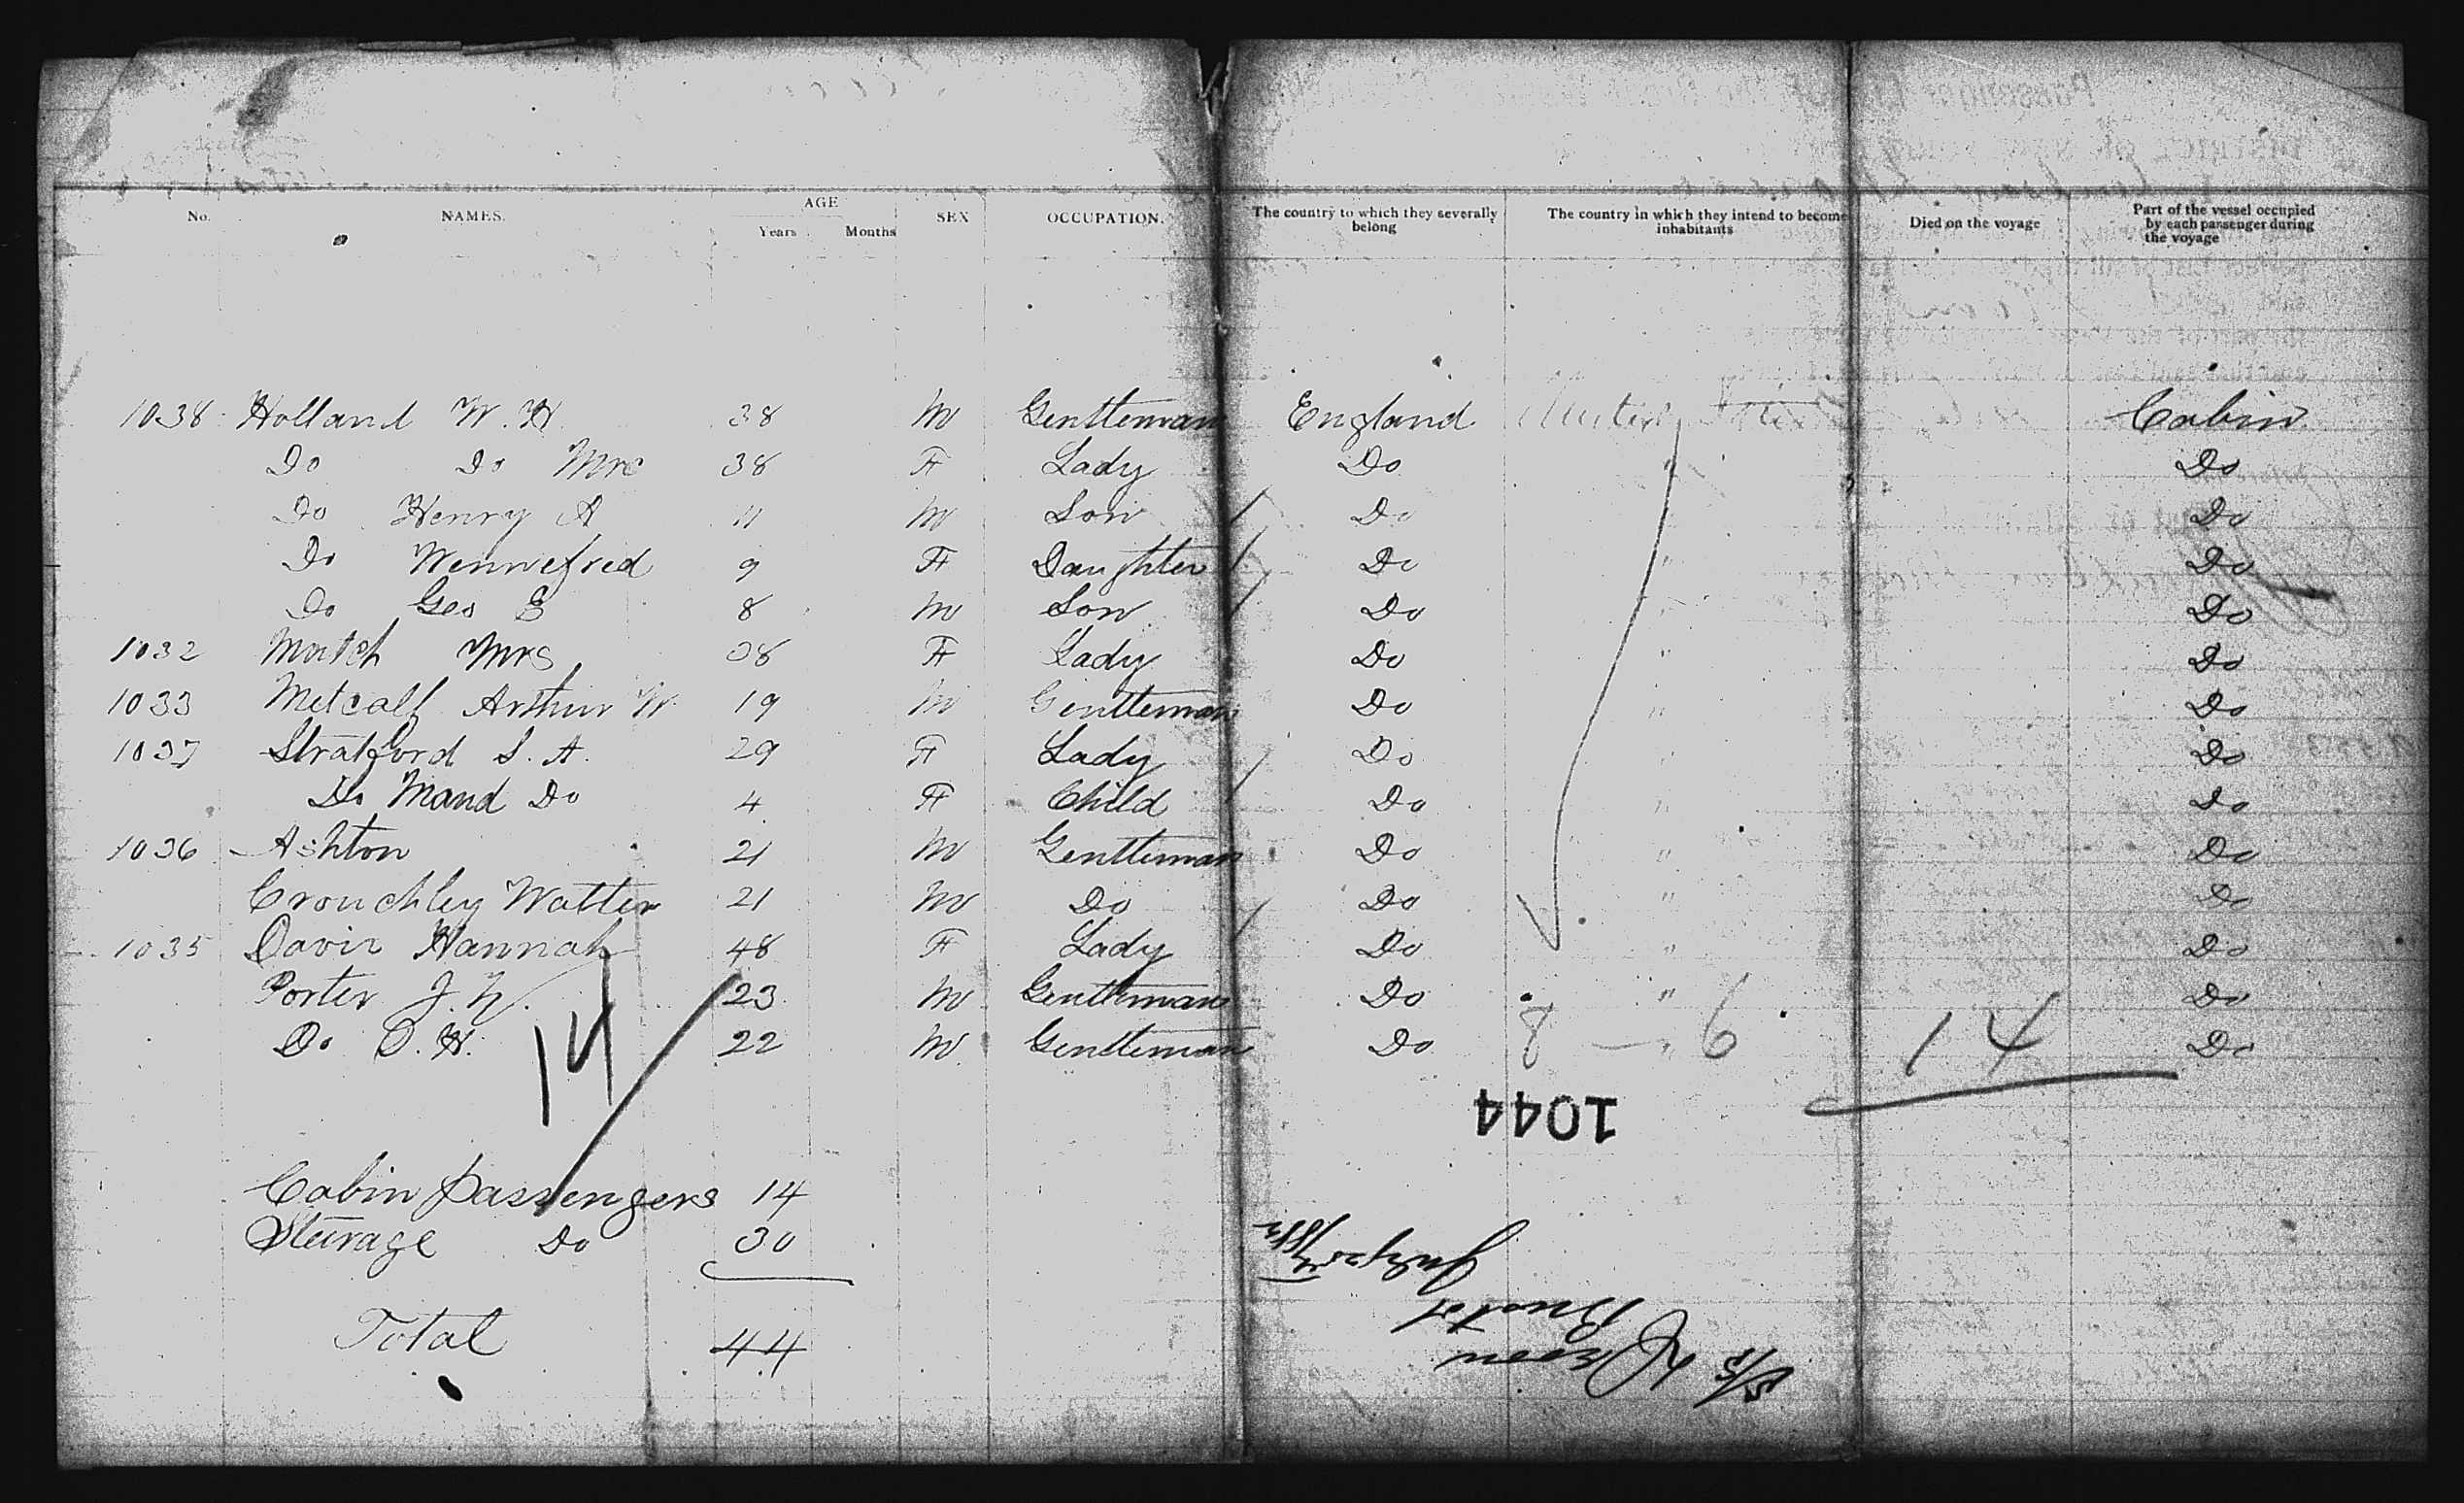 No. NAMES. AGE Years Months SEX OCCUPATION. The country to which they severally belong The country in which they intend to become inhabitants Died on the voyage Part of the vessel occupied by each passenger during the voyage
1038 Holland W. H. 38 M Gentleman England United States Cabin
Do Do Mrs 38 F Lady Do " Do
Do Henry A 11 M Son Do " Do
Do Wennefred 9 F Daughter Do " Do
Do Geo E 8 M Son Do " Do
1032 Match Mrs 38 F Lady Do " Do
1033 Metcalf Arthur W. 19 M Gentleman Do " Do
1037 Stratford S. A. 29 F Lady Do " Do
Do Maud Do 4 F Child Do " Do
1036 Ashton 21 M Gentleman Do " Do
Crouchley Walter 21 M Do Do " Do
1035 Davis Hannah 48 F Lady Do " Do
Porter J. H. 23 M Gentleman Do " Do
Do D. H. 22 M Gentleman Do " Do
14
8 — 6 14
1044
Cabin passengers 14
Steerage Do 30
Total 44
S/S
July